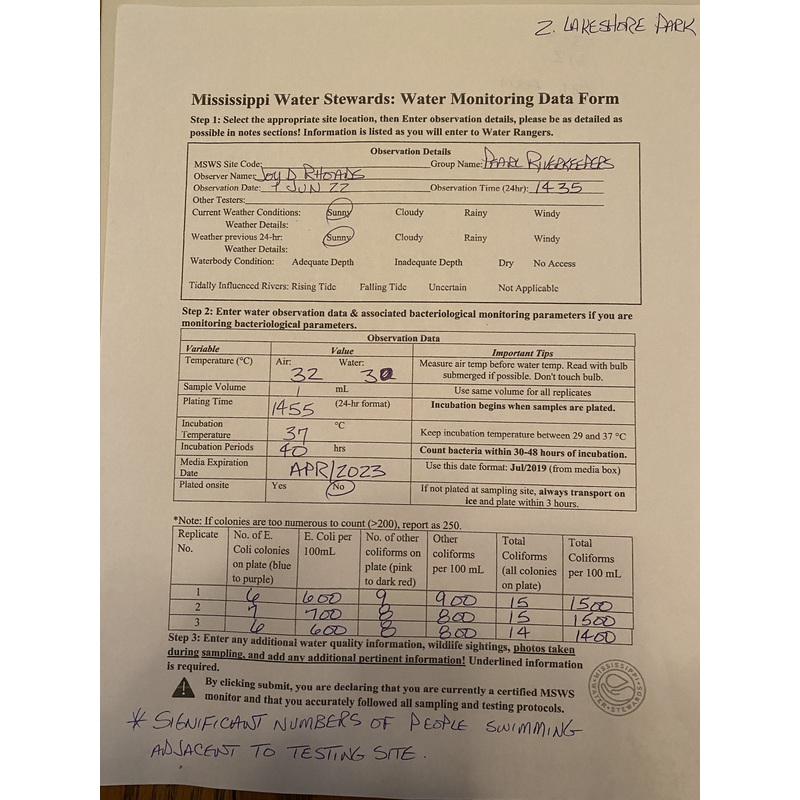 2. LAKESHORE PARK
Mississippi Water Stewards: Water Monitoring Data Form
Step 1: Select the appropriate site location, then Enter observation details, please be as detailed as
possible in notes sections! Information is listed as you will enter to Water Rangers.
Observation Details
MSWS Site Code: Group Name: PEARL RIVERKEEPERS
Observer Name: JOY D RHOADS
Observation Date: 9 JUN 22 Observation Time (24hr): 1435
Other Testers:
Current Weather Conditions: Sunny Cloudy Rainy Windy
Weather Details:
Weather previous 24-hr: Sunny Cloudy Rainy Windy
Weather Details:
Waterbody Condition: Adequate Depth Inadequate Depth Dry No Access
Tidally Influenced Rivers: Rising Tide Falling Tide Uncertain Not Applicable
Step 2: Enter water observation data & associated bacteriological monitoring parameters if you are
monitoring bacteriological parameters.
Observation Data
Variable Value Important Tips
Temperature (°C) Air: 32 Water: 30 Measure air temp before water temp. Read with bulb
submerged if possible. Don't touch bulb.
Sample Volume 1 mL Use same volume for all replicates
Plating Time 1455 (24-hr format) Incubation begins when samples are plated.
Incubation
Temperature 37 °C Keep incubation temperature between 29 and 37 °C
Incubation Periods 40 hrs Count bacteria within 30-48 hours of incubation.
Media Expiration
Date APR/2023 Use this date format: Jul/2019 (from media box)
Plated onsite Yes No If not plated at sampling site, always transport on
ice and plate within 3 hours.
*Note: If colonies are too numerous to count (>200), report as 250.
Replicate No. of E. E. Coli per No. of other Other Total Total
No. Coli colonies 100mL coliforms on coliforms Coliforms Coliforms
on plate (blue plate (pink per 100 mL (all colonies per 100 mL
to purple) to dark red) on plate)
1 6 600 9 900 15 1500
2 7 700 8 800 15 1500
3 6 600 8 800 14 1400
Step 3: Enter any additional water quality information, wildlife sightings, photos taken
during sampling, and add any additional pertinent information! Underlined information
is required.
By clicking submit, you are declaring that you are currently a certified MSWS
monitor and that you accurately followed all sampling and testing protocols.
MISSISSIPPI WATER STEWARDS
* SIGNIFICANT NUMBERS OF PEOPLE SWIMMING
ADJACENT TO TESTING SITE.